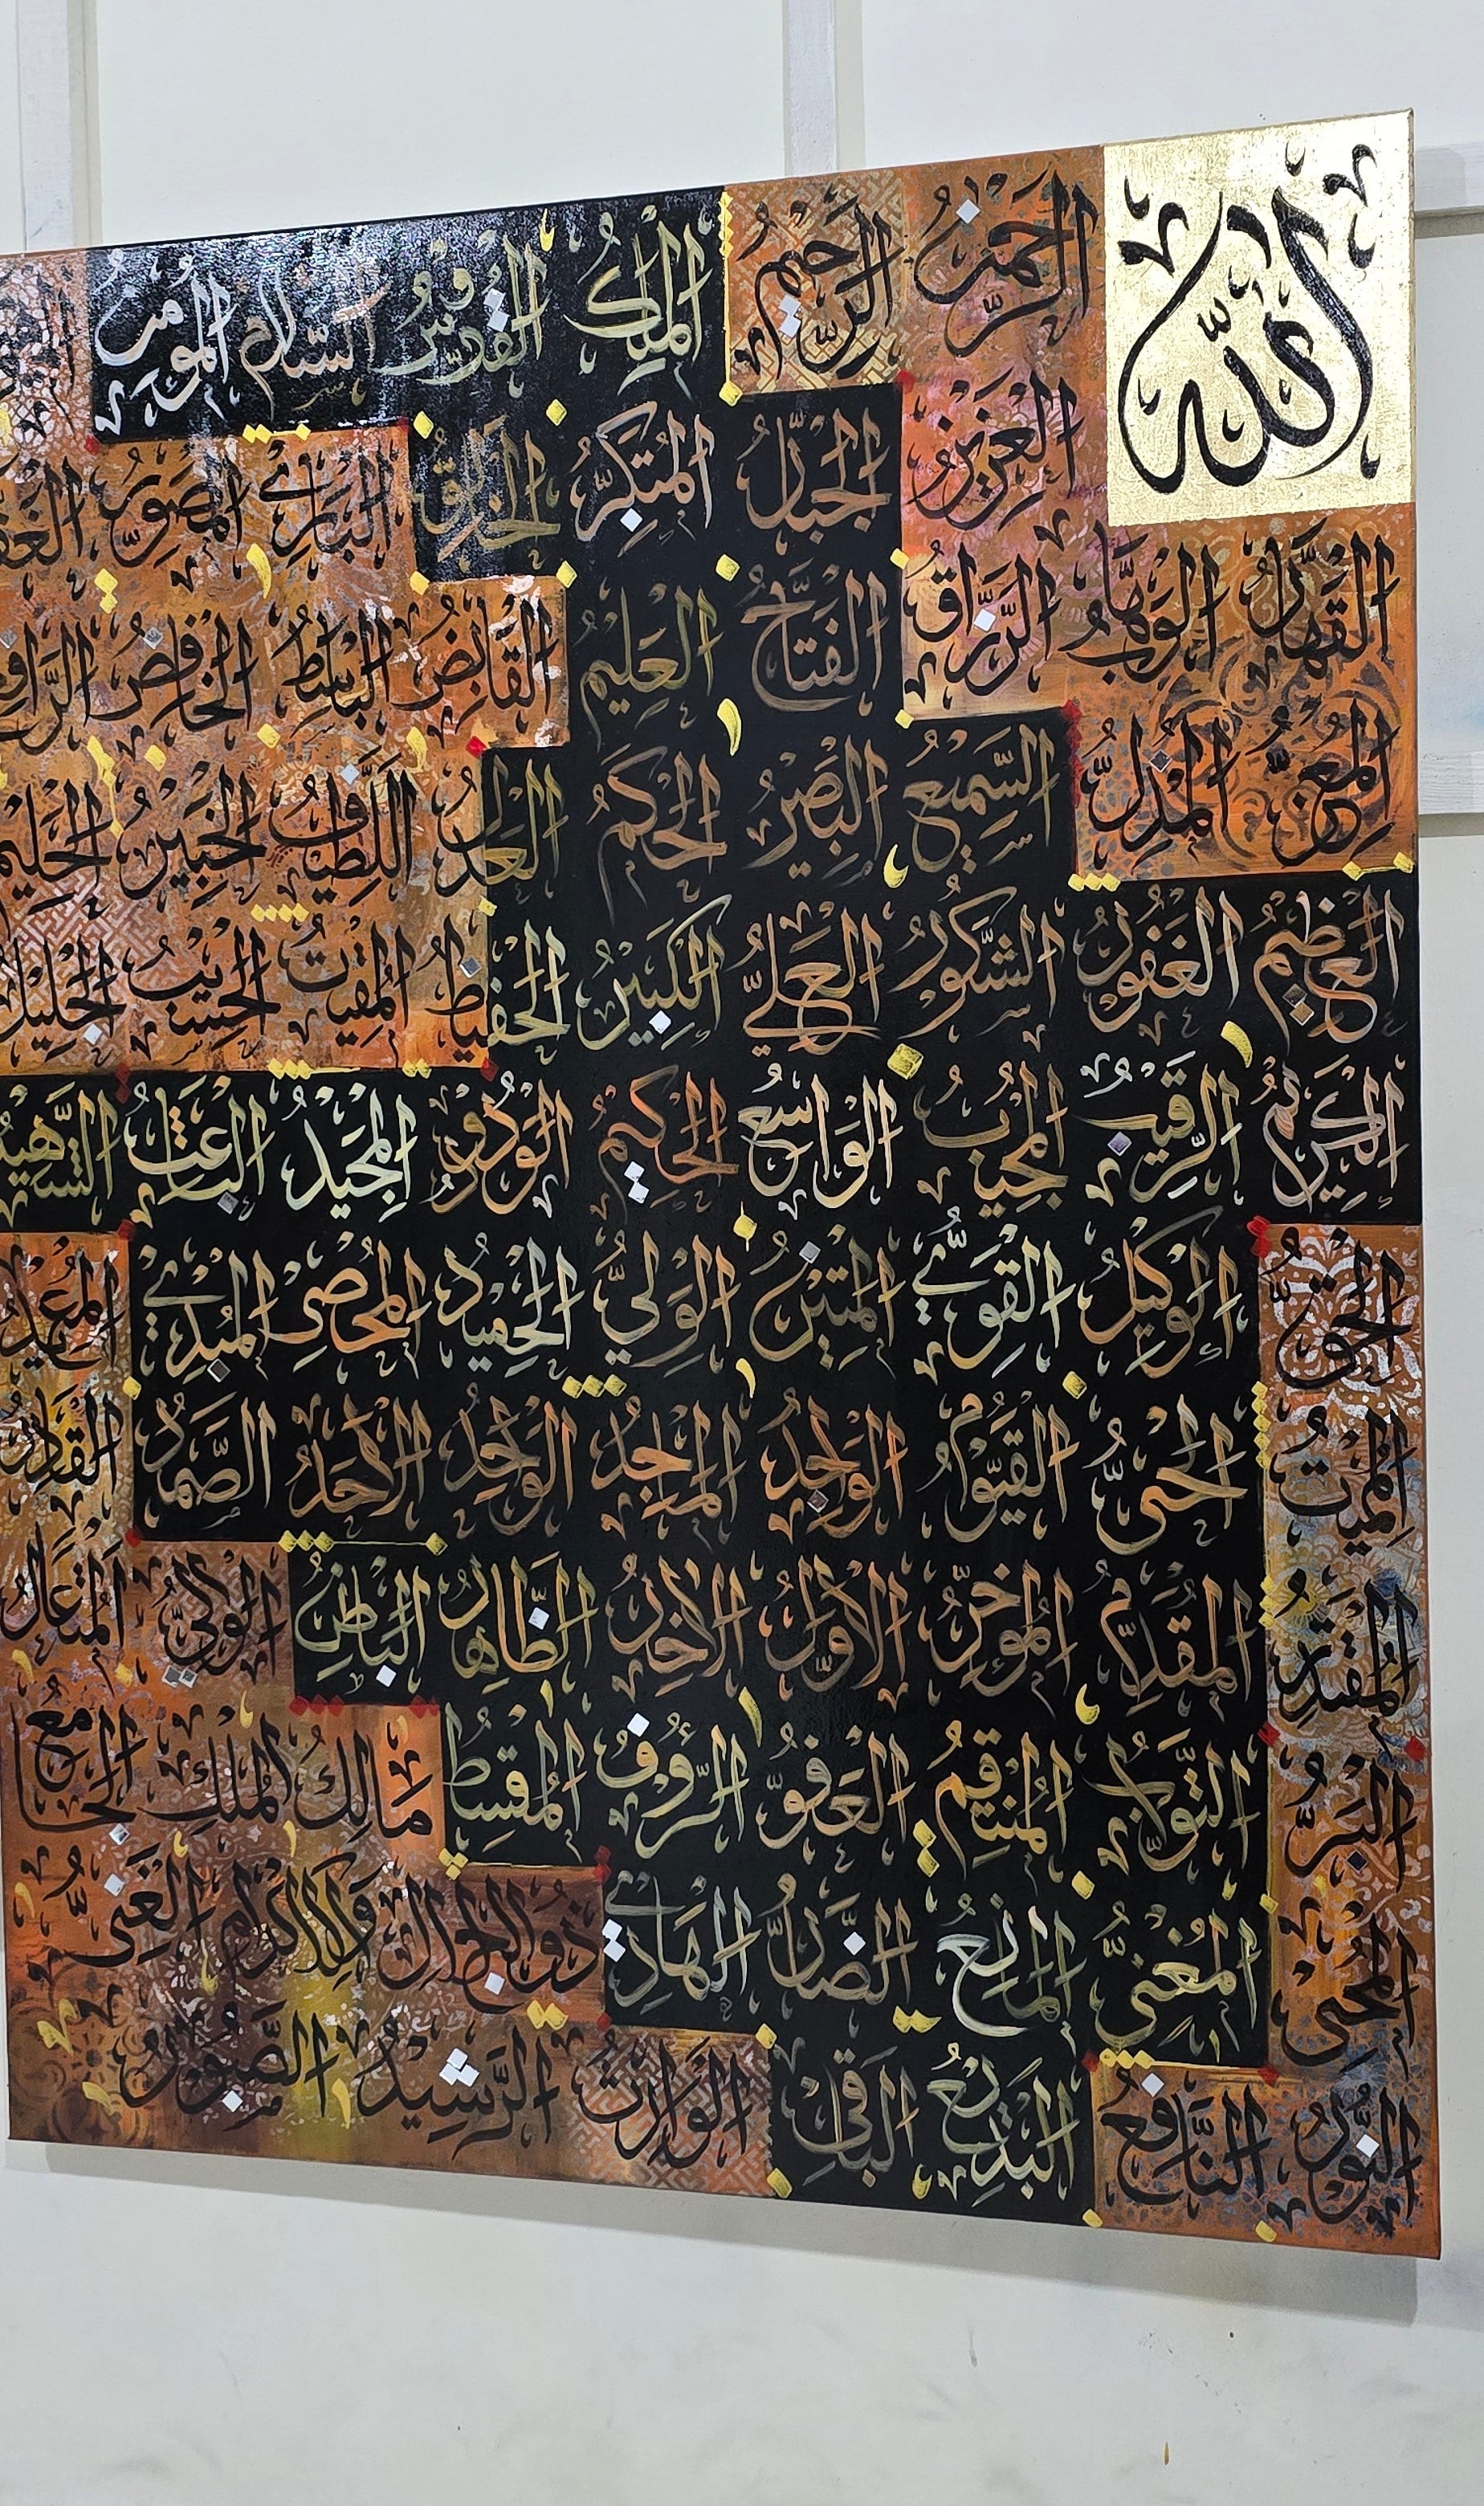 الله
الرحمن الرحيم الملك القدوس السلام المؤمن
العزيز الجبار المتكبر الخالق البارئ المصور
القهار الوهاب الرزاق الفتاح العليم القابض الباسط الخافض
المعز المذل السميع البصير الحكم العدل اللطيف الخبير الحليم
العظيم الغفور الشكور العلي الكبير الحفيظ المقيت الحسيب الجليل
الكريم الرقيب المجيب الواسع الحكيم الودود المجيد الباعث الشهيد
الحق الوكيل القوي المتين الولي الحميد المحصي المبدئ المعيد
المميت الحي القيوم الواجد الماجد الواحد الاحد الصمد القادر
المقتدر المقدم المؤخر الأول الآخر الظاهر الباطن الوالي المتعال
البر التواب المنتقم العفو الرؤوف المقسط مالك الملك الجامع
المحيي المغني المانع الضار الهادي ذو الجلال والاكرام الغني
النور النافع البديع الباقي الوارث الرشيد الصبور